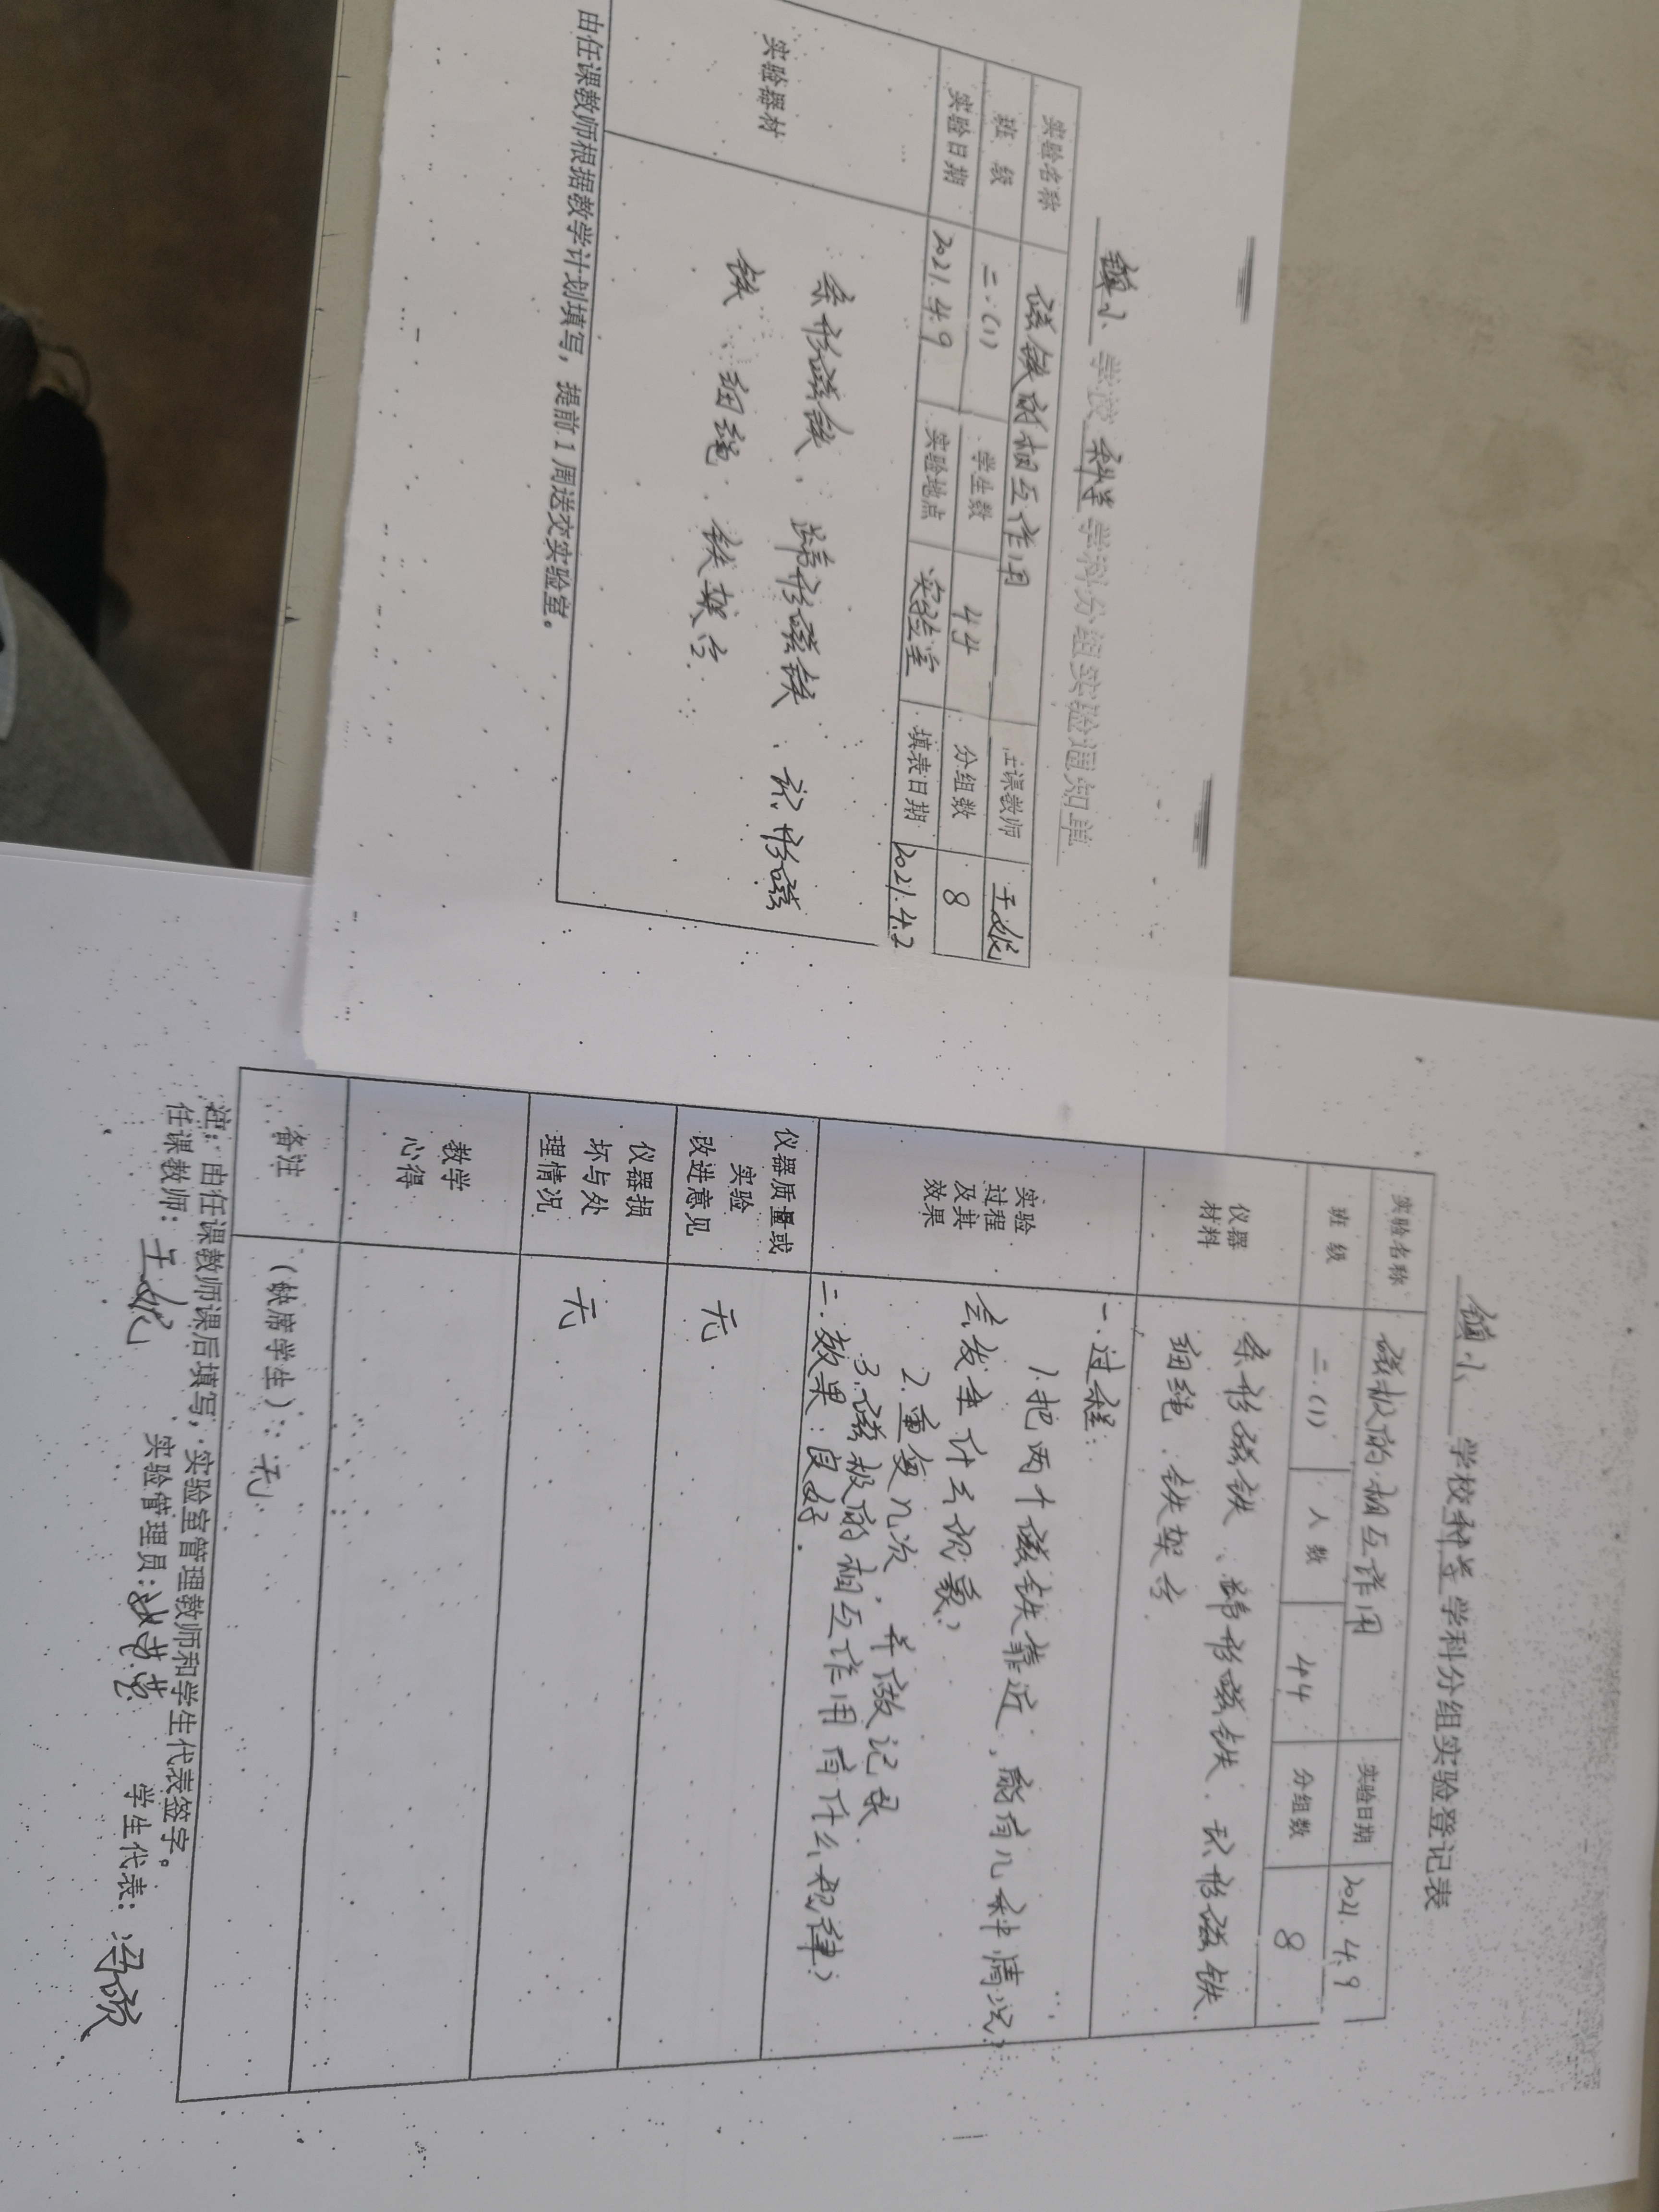 镇小 学校 科学 学科分组实验通知单
实验名称 磁铁的相互作用 上课教师
班 级 二.(1) 学生数 44 分组数 8
实验日期 2021.4.9 实验地点 实验室 填表日期 2021.4.2
实验器材
条形磁铁、蹄形磁铁、环形磁
铁 细绳、铁架台.
由任课教师根据教学计划填写，提前1周送交实验室。
镇小 学校科学学科分组实验登记表
实验名称 磁极的相互作用 实验日期 2021.4.9
班 级 二.(1) 人 数 44 分组数 8
仪器
材料
条形磁铁、蹄形磁铁、环形磁铁.
细绳、铁架台
实验
过程
及其
效果
一.过程:
1.把两个磁铁靠近,能有几种情况?
会发生什么现象?
2.重复几次,并做记录
3.磁极的相互作用有什么规律?
二.效果:良好.
仪器质量或
实验
改进意见
无
仪器损
坏与处
理情况
无
教学
心得
备注
(缺席学生):无.
注：由任课教师课后填写，实验室管理教师和学生代表签字。
任课教师： 实验管理员： 学生代表：